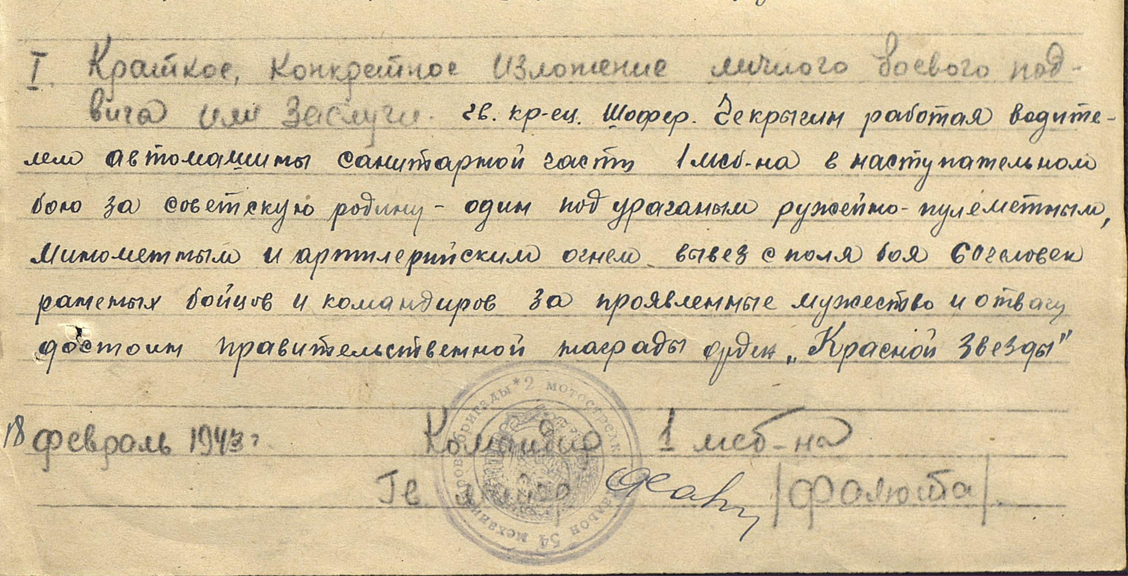 I. Краткое, конкретное изложение личного боевого под-
вига или заслуги. гв. кр-ец. Шофер. Чекрыгин работая водите-
лем автомашины санитарной части 1 мсб-на в наступательном
бою за советскую родину - один под ураганым ружейно-пулеметным,
минометным и артилерийским огнем вывез с поля боя 60 человек
раненых бойцов и командиров за проявленные мужество и отвагу
достоин правительственной награды орден „Красной Звезды"
18 февраль 1943 г. Командир 1 мсб-на
Гв /Фалюта/
2 мотострелк 54 механи бригады